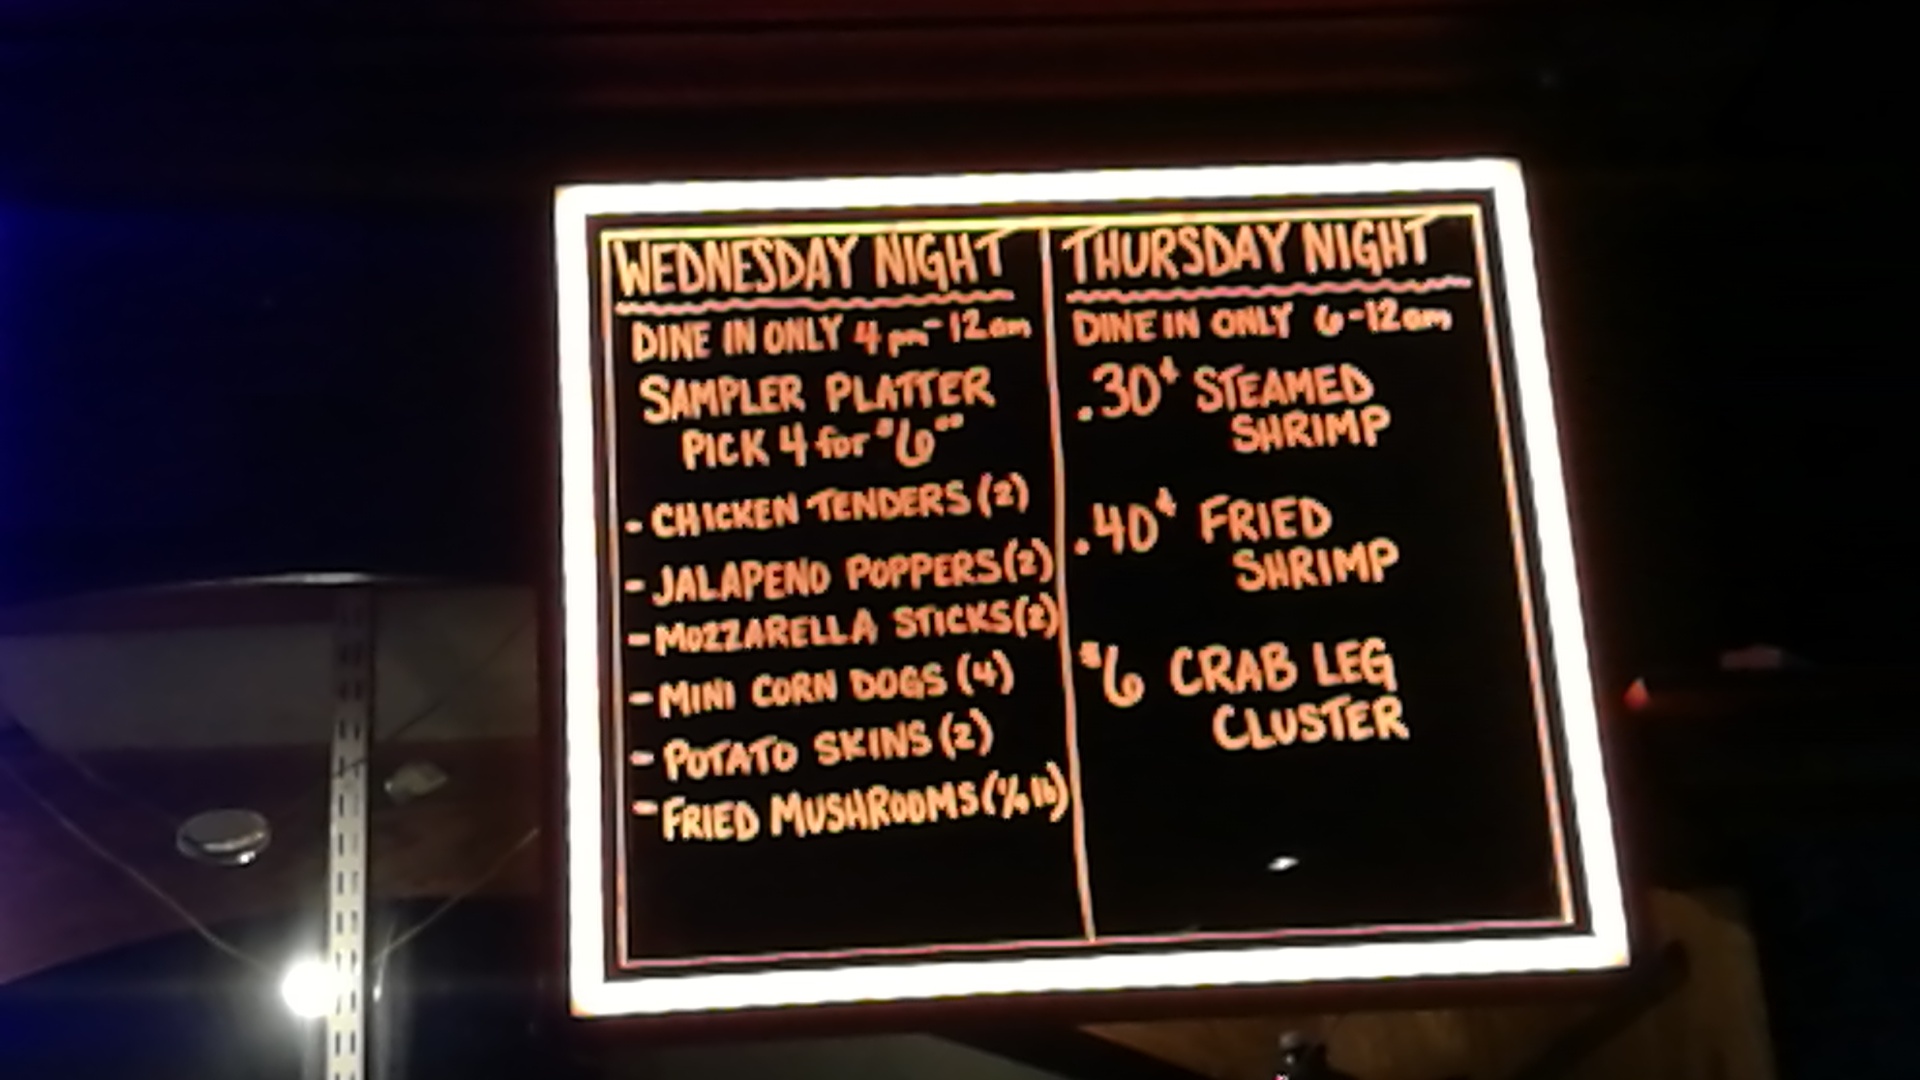 WEDNESDAY NIGHT
DINE IN ONLY 4pm-12am
SAMPLER PLATTER
PICK 4 for $6⁰⁰
- CHICKEN TENDERS (2)
- JALAPENO POPPERS (2)
- MOZZARELLA STICKS (2)
- MINI CORN DOGS (4)
- POTATO SKINS (2)
- FRIED MUSHROOMS ( lb)
THURSDAY NIGHT
DINE IN ONLY 6-12am
.30¢ STEAMED
SHRIMP
.40¢ FRIED
SHRIMP
$6 CRAB LEG
CLUSTER